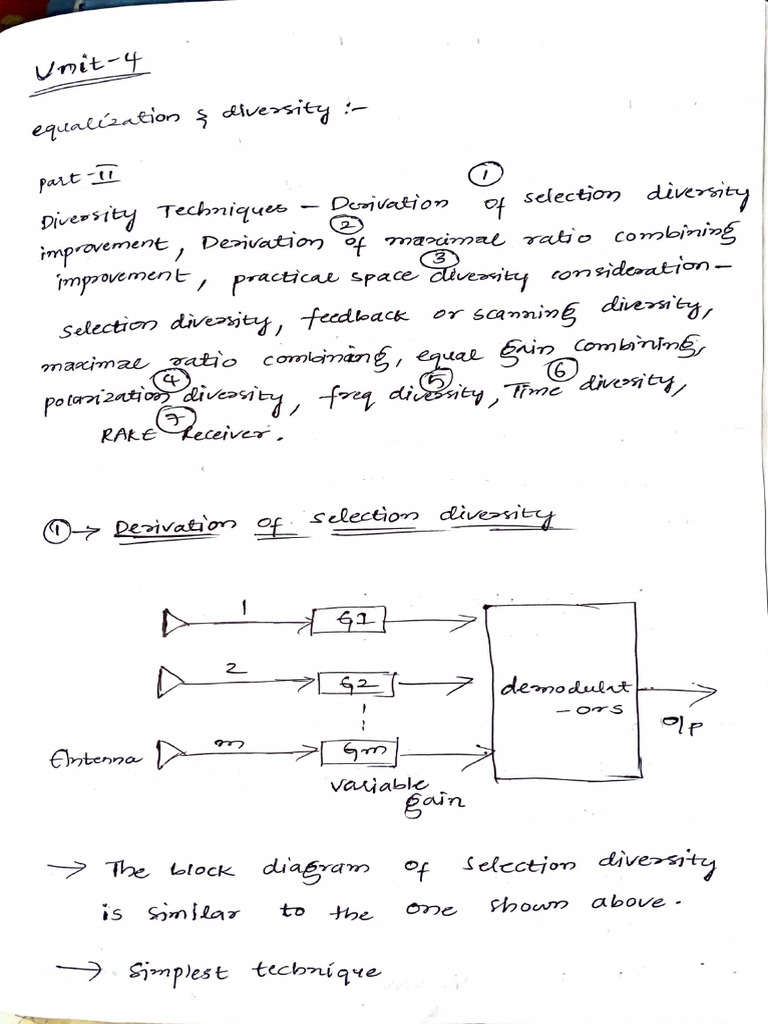 Unit-4
equalization & diversity :-
part-II
①
Diversity Techniques - Derivation of selection diversity
②
improvement, Derivation of maximal ratio combining
③
improvement, practical space diversity consideration-
selection diversity, feedback or scanning diversity,
maximal ratio combining, equal gain combining,
④ ⑤ ⑥
polarization diversity, freq diversity, Time diversity,
⑦
RAKE Receiver.
① → Derivation of selection diversity
1
G1
2
G2
demodulat
-ors
O/p
Antenna
m
Gm
variable
gain
→ The block diagram of selection diversity
is similar to the one shown above.
→ Simplest technique